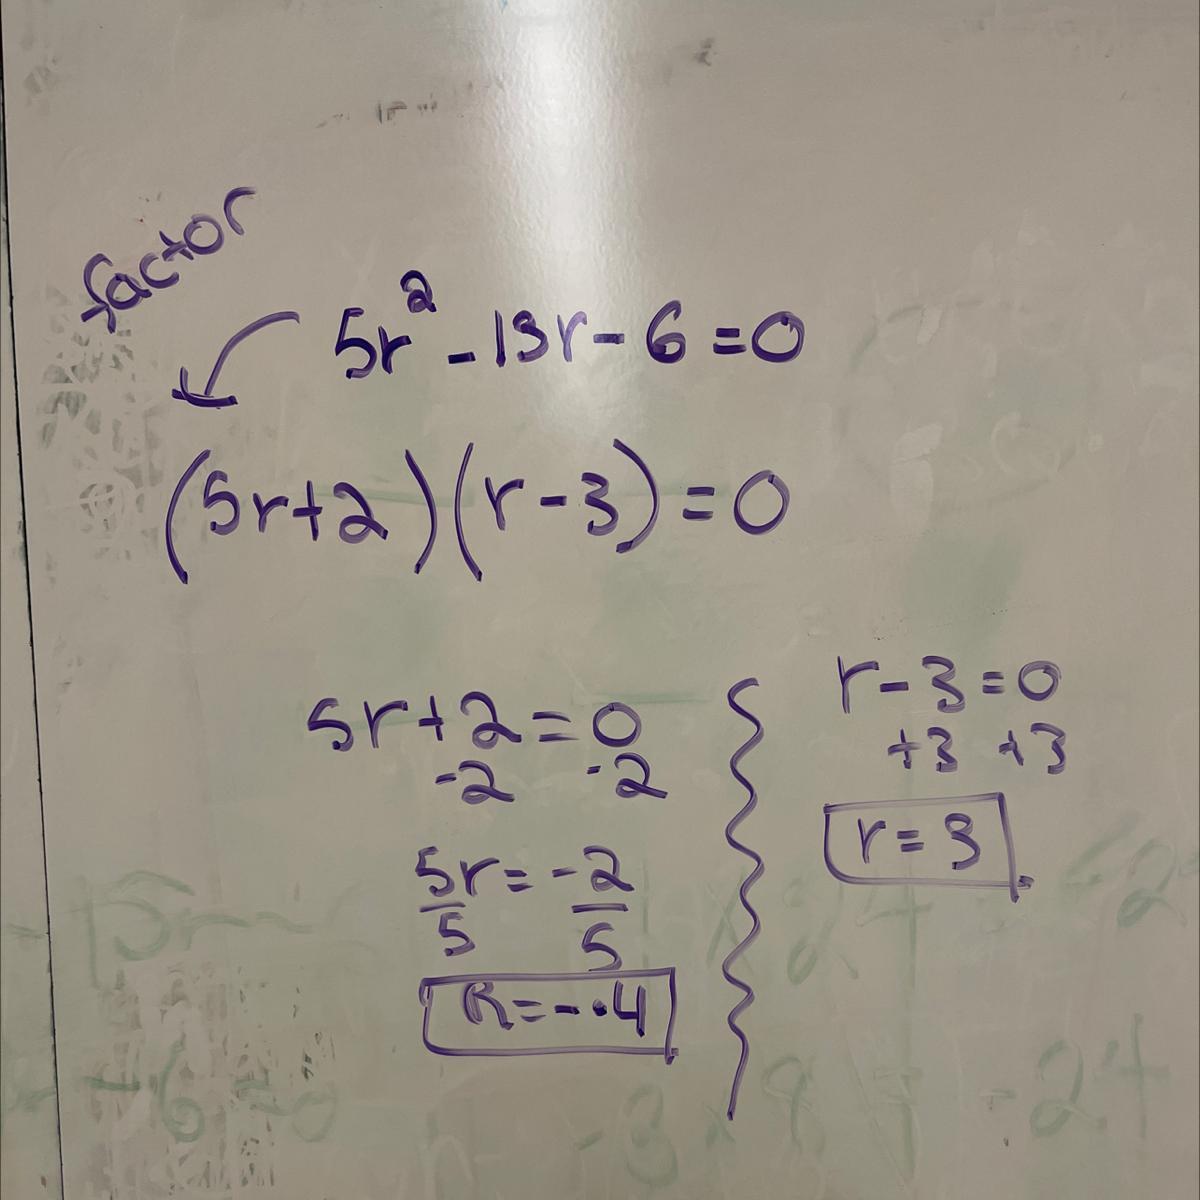 factor
5r² - 13r - 6 = 0
(5r+2)(r-3) = 0
5r+2=0
-2 -2
5r = -2
5 5
R = -.4
r-3=0
+3 +3
r = 3